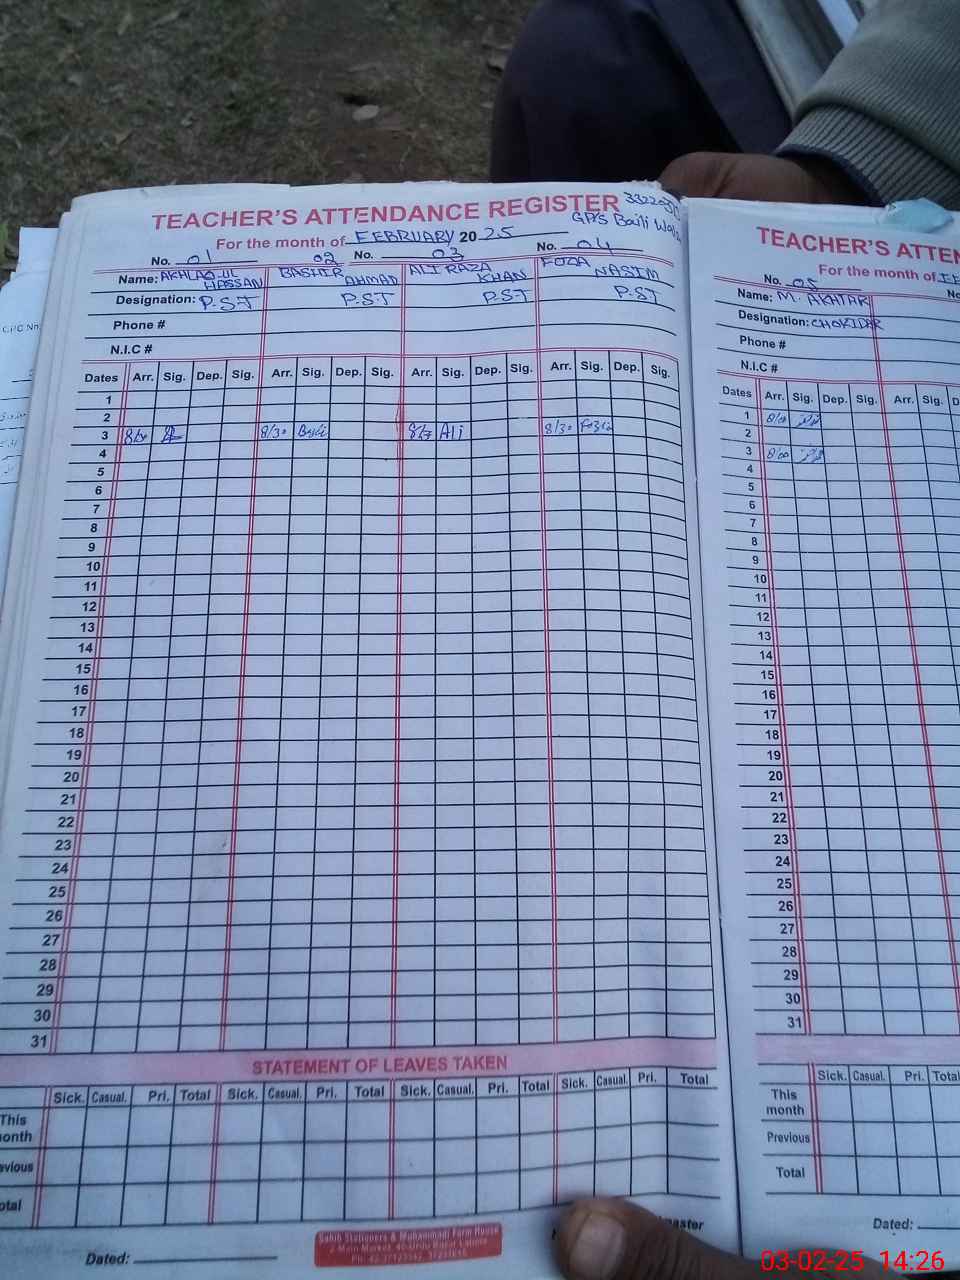 TEACHER'S ATTENDANCE REGISTER
GPS Baili Wala
For the month of FEBRUARY 2025
No. 01 02 No. 03 No. 04
Name: AKHLAQ-UL HASSAN BASHIR AHMAD ALI RAZA KHAN FOZA NASIM
Designation: P.S.T P.S.T P.S.T P.S.T
Phone #
N.I.C #
Dates Arr. Sig. Dep. Sig. Arr. Sig. Dep. Sig. Arr. Sig. Dep. Sig. Arr. Sig. Dep. Sig.
1
2
3 8/30 8/30 Ali 8/30
4
5
6
7
8
9
10
11
12
13
14
15
16
17
18
19
20
21
22
23
24
25
26
27
28
29
30
31
STATEMENT OF LEAVES TAKEN
Sick. Casual. Pri. Total Sick. Casual. Pri. Total Sick. Casual. Pri. Total Sick. Casual. Pri. Total
This
onth
evious
otal
Dated:
master
TEACHER'S ATTEN
For the month of
No. 05
Name: M. AKHTAR
Designation: CHOKIDAR
Phone #
N.I.C #
Dates Arr. Sig. Dep. Sig. Arr. Sig. D
1 8/00
2
3 8/00
4
5
6
7
8
9
10
11
12
13
14
15
16
17
18
19
20
21
22
23
24
25
26
27
28
29
30
31
Sick. Casual. Pri. Total
This
month
Previous
Total
Dated:
03-02-25 14:26